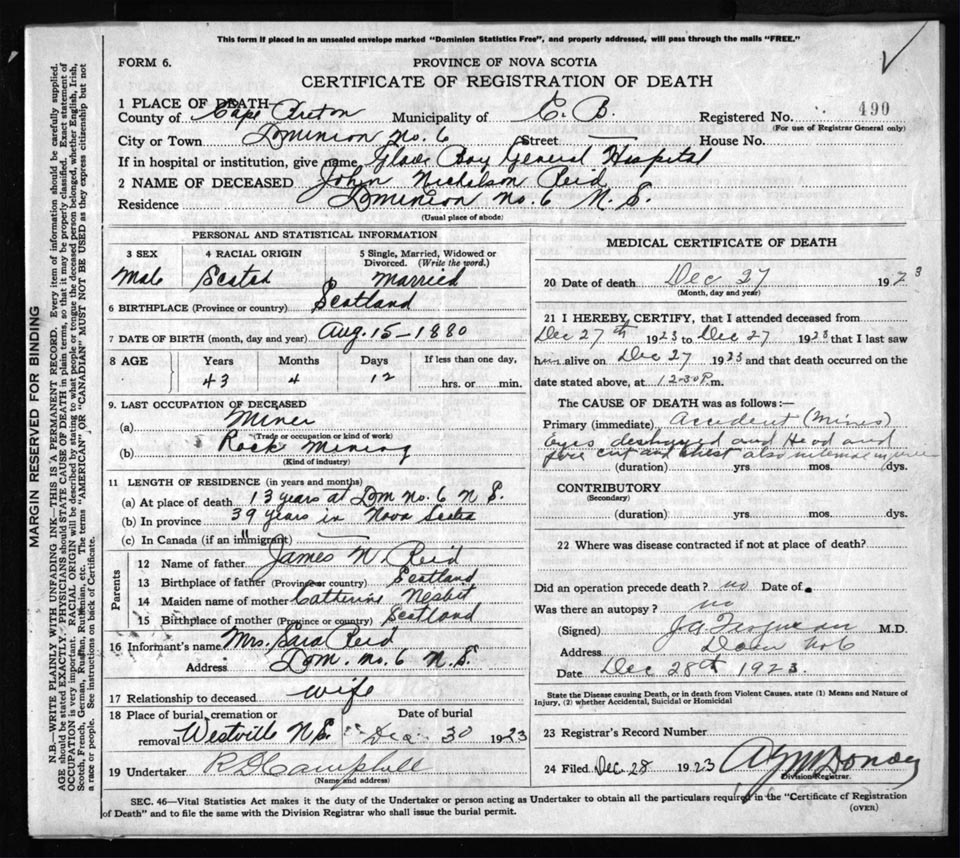 This form if placed in an unsealed envelope marked "Dominion Statistics Free", and properly addressed, will pass through the mails "FREE."
FORM 6.
PROVINCE OF NOVA SCOTIA
CERTIFICATE OF REGISTRATION OF DEATH
1 PLACE OF DEATH
County of Cape Breton Municipality of C. B. Registered No. 490
(For use of Registrar General only)
City or Town Dominion No. 6 Street House No.
If in hospital or institution, give name Glace Bay General Hospital
2 NAME OF DECEASED John Nicholson Reid
Residence Dominion No. 6 N. S.
(Usual place of abode)
PERSONAL AND STATISTICAL INFORMATION
3 SEX 4 RACIAL ORIGIN 5 Single, Married, Widowed or Divorced. (Write the word.)
Male Scotch Married
6 BIRTHPLACE (Province or country) Scotland
7 DATE OF BIRTH (month, day and year) Aug. 15 - 1880
8 AGE Years Months Days If less than one day,
43 4 12 hrs. or min.
9. LAST OCCUPATION OF DECEASED
(a) Miner
(Trade or occupation or kind of work)
(b) Rock Mining
(Kind of industry)
11 LENGTH OF RESIDENCE (in years and months)
(a) At place of death 13 years at Dom No. 6 N S.
(b) In province 39 years in Nova Scotia
(c) In Canada (if an immigrant)
Parents
12 Name of father James N Reid
13 Birthplace of father (Province or country) Scotland
14 Maiden name of mother Catherine Nesbit
15 Birthplace of mother (Province or country) Scotland
16 Informant's name Mrs. Sara Reid
Address Dom. No. 6 N.S.
17 Relationship to deceased wife
18 Place of burial, cremation or removal Westville N.S. Date of burial Dec 30 1923
19 Undertaker R D Campbell
(Name and address)
MEDICAL CERTIFICATE OF DEATH
20 Date of death Dec 27 1923
(Month, day and year)
21 I HEREBY CERTIFY, that I attended deceased from
Dec 27th 1923 to Dec 27 1923 that I last saw
him alive on Dec 27 1923 and that death occurred on the
date stated above, at 12-30 P.m.
The CAUSE OF DEATH was as follows:—
Primary (immediate) Accident (Mines)
eyes destroyed and Head and
face cut and chest also internal injuries
(duration) yrs. mos. dys.
CONTRIBUTORY
(Secondary)
(duration) yrs. mos. dys.
22 Where was disease contracted if not at place of death?
Did an operation precede death? no Date of
Was there an autopsy? no
(Signed) J A Ferguson M.D.
Address Dom No 6
Date Dec 28th 1923.
State the Disease causing Death, or in death from Violent Causes, state (1) Means and Nature of Injury, (2) whether Accidental, Suicidal or Homicidal
23 Registrar's Record Number
24 Filed Dec 28 1923
Division Registrar.
SEC. 46—Vital Statistics Act makes it the duty of the Undertaker or person acting as Undertaker to obtain all the particulars required in the "Certificate of Registration
of Death" and to file the same with the Division Registrar who shall issue the burial permit.
(OVER)
MARGIN RESERVED FOR BINDING
N.B.—WRITE PLAINLY WITH UNFADING INK—THIS IS A PERMANENT RECORD. Every item of information should be carefully supplied.
AGE should be stated EXACTLY. PHYSICIANS should STATE CAUSE OF DEATH in plain terms, so that it may be properly classified. Exact statement of
OCCUPATION is very important. RACIAL ORIGIN will be described by stating to what people or tongue the deceased person belonged, whether English, Irish,
Scotch, French, German, Russian, Ruthenian, etc. The terms "AMERICAN" OR "CANADIAN" MUST NOT BE USED as they express citizenship but not
a race or people. See instructions on back of Certificate.